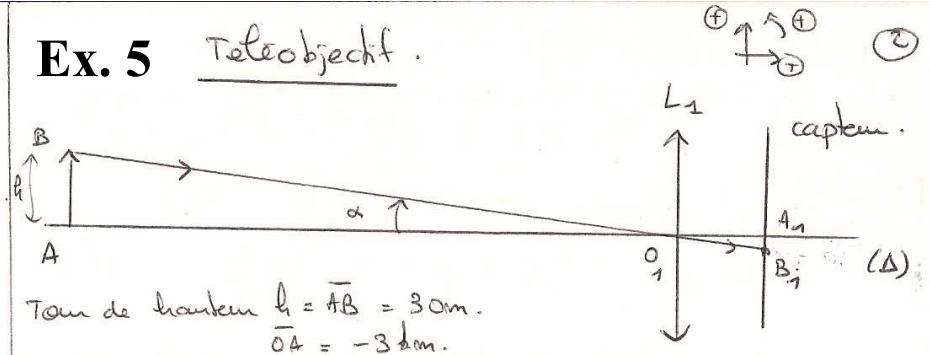 Ex. 5 Téléobjectif.
⊕ ⊕ ⊕
②
L₁
capteur.
B
h
α
A
O₁
A₁
B₁
(Δ)
Tour de hauteur h = A̅B̅ = 30m.
O̅A̅ = -3 km.